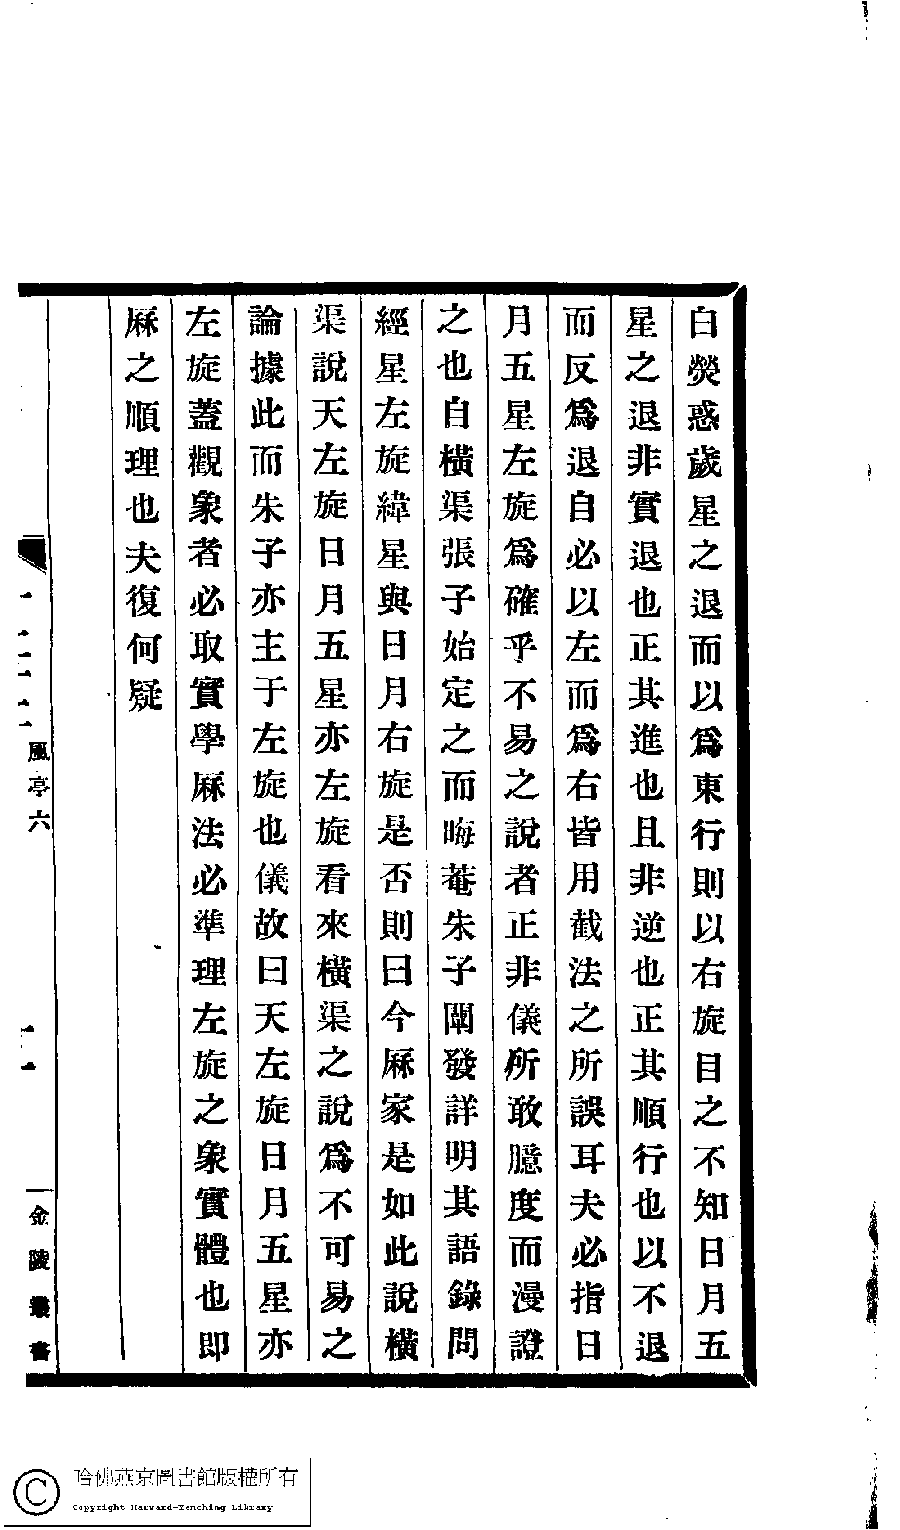 白熒惑歲星之退而以爲東行則以右旋目之不知日月五
星之退非實退也正其進也且非逆也正其順行也以不退
而反爲退自必以左而爲右皆用截法之所誤耳夫必指日
月五星左旋爲確乎不易之說者正非儀所敢臆度而漫證
之也自橫渠張子始定之而晦菴朱子闡發詳明其語錄問
經星左旋緯星與日月右旋是否則曰今厤家是如此說橫
渠說天左旋日月五星亦左旋看來橫渠之說爲不可易之
論據此而朱子亦主于左旋也儀故曰天左旋日月五星亦
左旋蓋觀象者必取實學厤法必準理左旋之象實體也即
厤之順理也夫復何疑
風亭六
金陵叢書
哈佛燕京圖書館版權所有
Copyright Harvard-Yenching Library